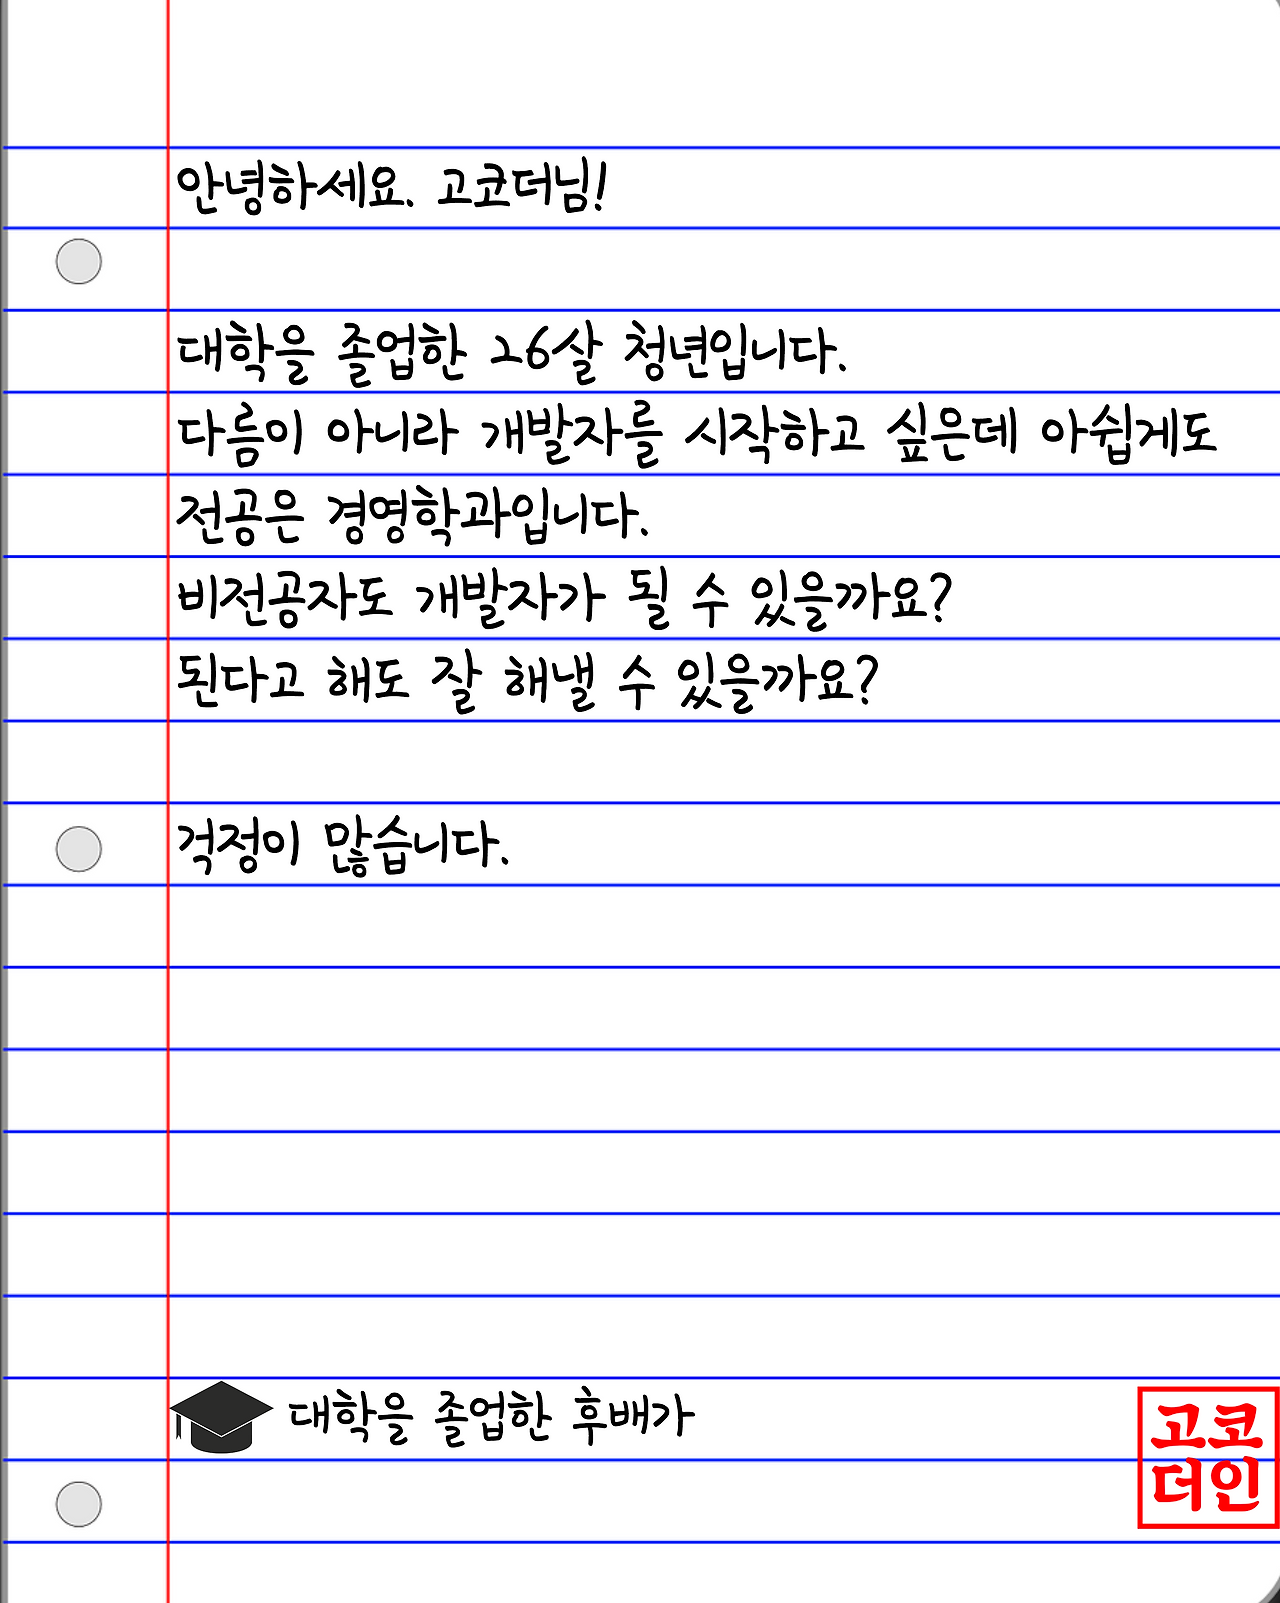 안녕하세요. 고코더님!
대학을 졸업한 26살 청년입니다.
다름이 아니라 개발자를 시작하고 싶은데 아쉽게도
전공은 경영학과입니다.
비전공자도 개발자가 될 수 있을까요?
된다고 해도 잘 해낼 수 있을까요?
걱정이 많습니다.
대학을 졸업한 후배가
고코
더인